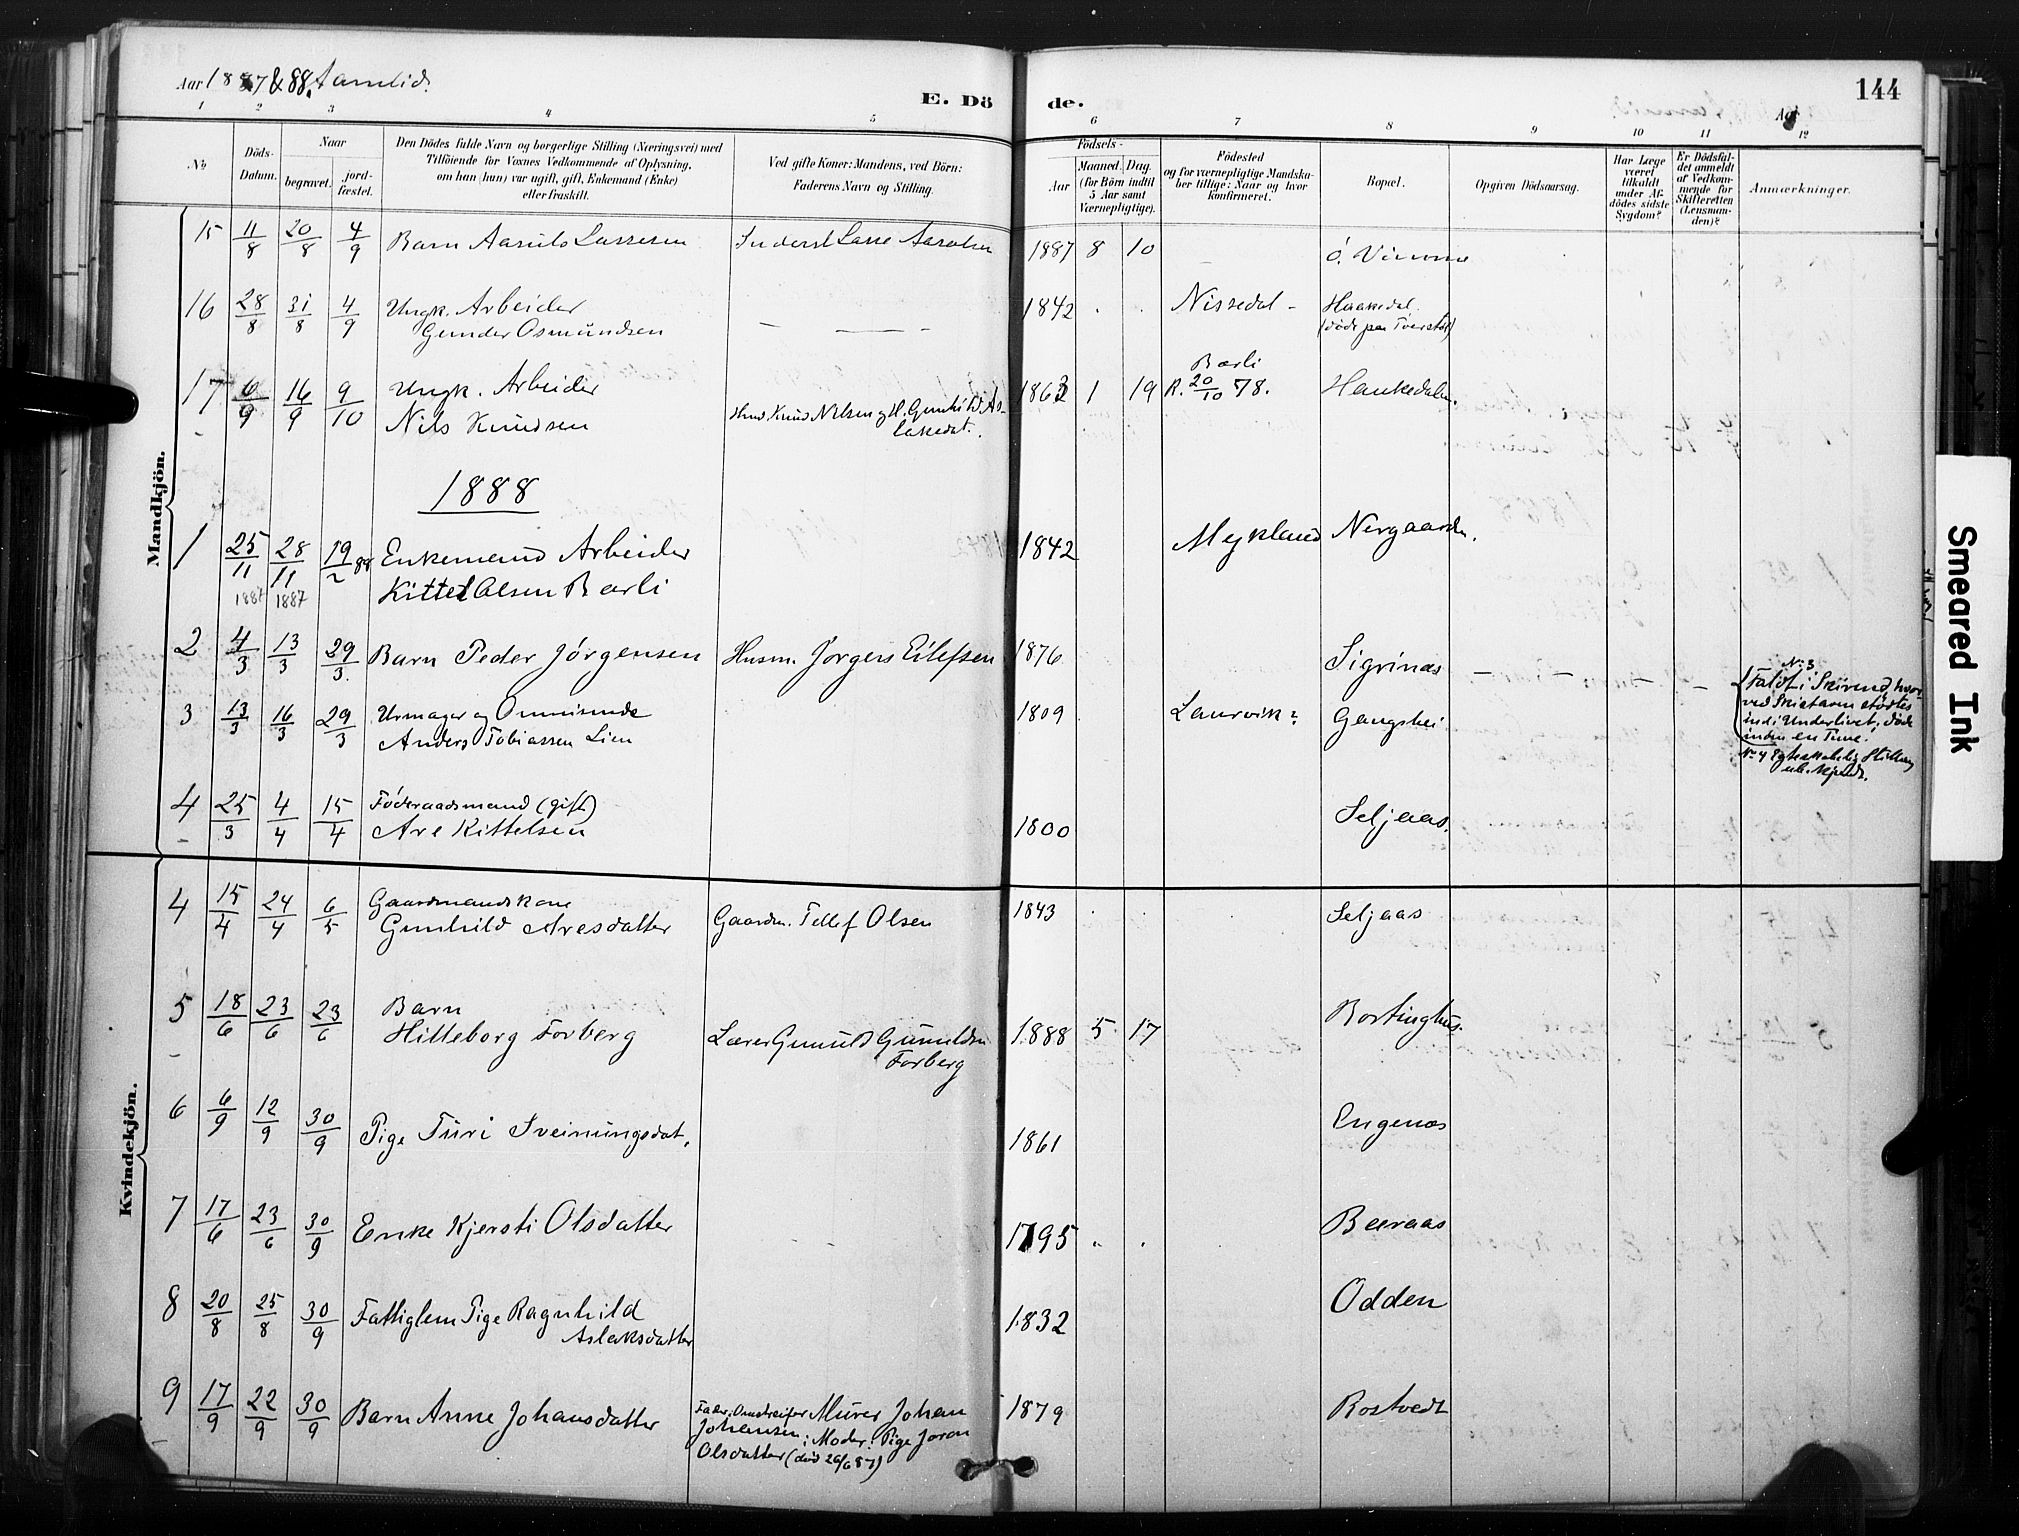 Aar 1887 & 88. Aamlid.
E. Dö de.
144
Aar
1 2 3 4 5 6 7 8 9 10 11 12
No.
Döds-Datum.
Naar
begravet.
jord-fæstet.
Den Dödes fulde Navn og borgerlige Stilling (Næringsvei) med
Tilföiende for Voxnes Vedkommende af Oplysning,
om han (hun) var ugift, gift, Enkemand (Enke)
eller fraskilt.
Ved gifte Koner: Mandens, ved Börn:
Faderens Navn og Stilling.
Födsels-
Aar
Maaned. Dag.
(for Börn indtil
5 Aar samt
Værnepligtige).
Födested
og for værnepligtige Mandska-
ber tillige: Naar og hvor
konfirmeret.
Bopæl.
Opgiven Dödsaarsag.
Har Læge
været
tilkaldt
under Af-
dödes sidste
Sygdom?
Er Dödsfal-
det anmeldt
af Vedkom-
mende for
Skifteretten
(Lensman-
den)?
Anmærkninger.
Mandkjön.
15 11/8 20/8 4/9 Barn Aasuls Lassesen Inderst Lasse Aasulsen 1887 8 10 – ö. Vimme
16 28/8 31/8 4/9 Ungk. Arbeider 1842 Nissedal – Haakedal
Gunder Osmundsen — — (död paa Tveretöl)
17 6/9 16/9 9/10 Ungk. Arbeider 1863 1 19 Barli
R. 20/10 78. Haukedalen.
Nils Knudsen Husm. Knud Nilsen og H. Gunhild As-
laksdat.
1888
1 25/11 28/11 19/2 88 Enkemand Arbeider 1842 Mykland Nergaarden.
1887 1887 Kittel Olsen Barli
2 4/3 13/3 29/3 Barn Peder Jörgensen Husm. Jörgen Eilefsen 1876 Sigrinæs
3 13/3 16/3 29/3 Urmager og Ommisende 1809 Laurvik? Gangshei
Anders Tobiassen Lien
No 3
Faldt i Skirend, hvor-
ved Skistaven stödtes
ind i Underlivet; döde
inden en Time.
No 4 Egteskabelig Stilling
ubekjendt.
4 25/3 4/4 15/4 Föderaadsmand (gift) Seljaas.
Are Kittelsen 1800
Kvindekjön.
4 15/4 24/4 6/5 Gaardmandskone 1843 Seljaas
Gunhild Aresdatter Gaardm. Tellef Olsen
5 18/6 23/6 23/6 Barn Bortinghus.
Hilleborg Forberg Lærer Gunuld Gunuldsen 1888 5 17
Forberg
6 6/9 12/9 30/9 Pige Turi Sveinungsdat. 1861 Engenæs
7 17/6 23/6 30/9 Enke Kjersti Olsdatter 1795 Baraas
8 20/8 25/8 30/9 Fattiglem Pige Ragnhild 1832 Odden
Aslaksdatter
9 17/9 22/9 30/9 Barn Anne Johansdatter Fader: Omstreifer Murer Johan 1879 Rostvedt
Johansen; Moder: Pige Joron
Olsdatter (död 26/6 87)
Smeared Ink